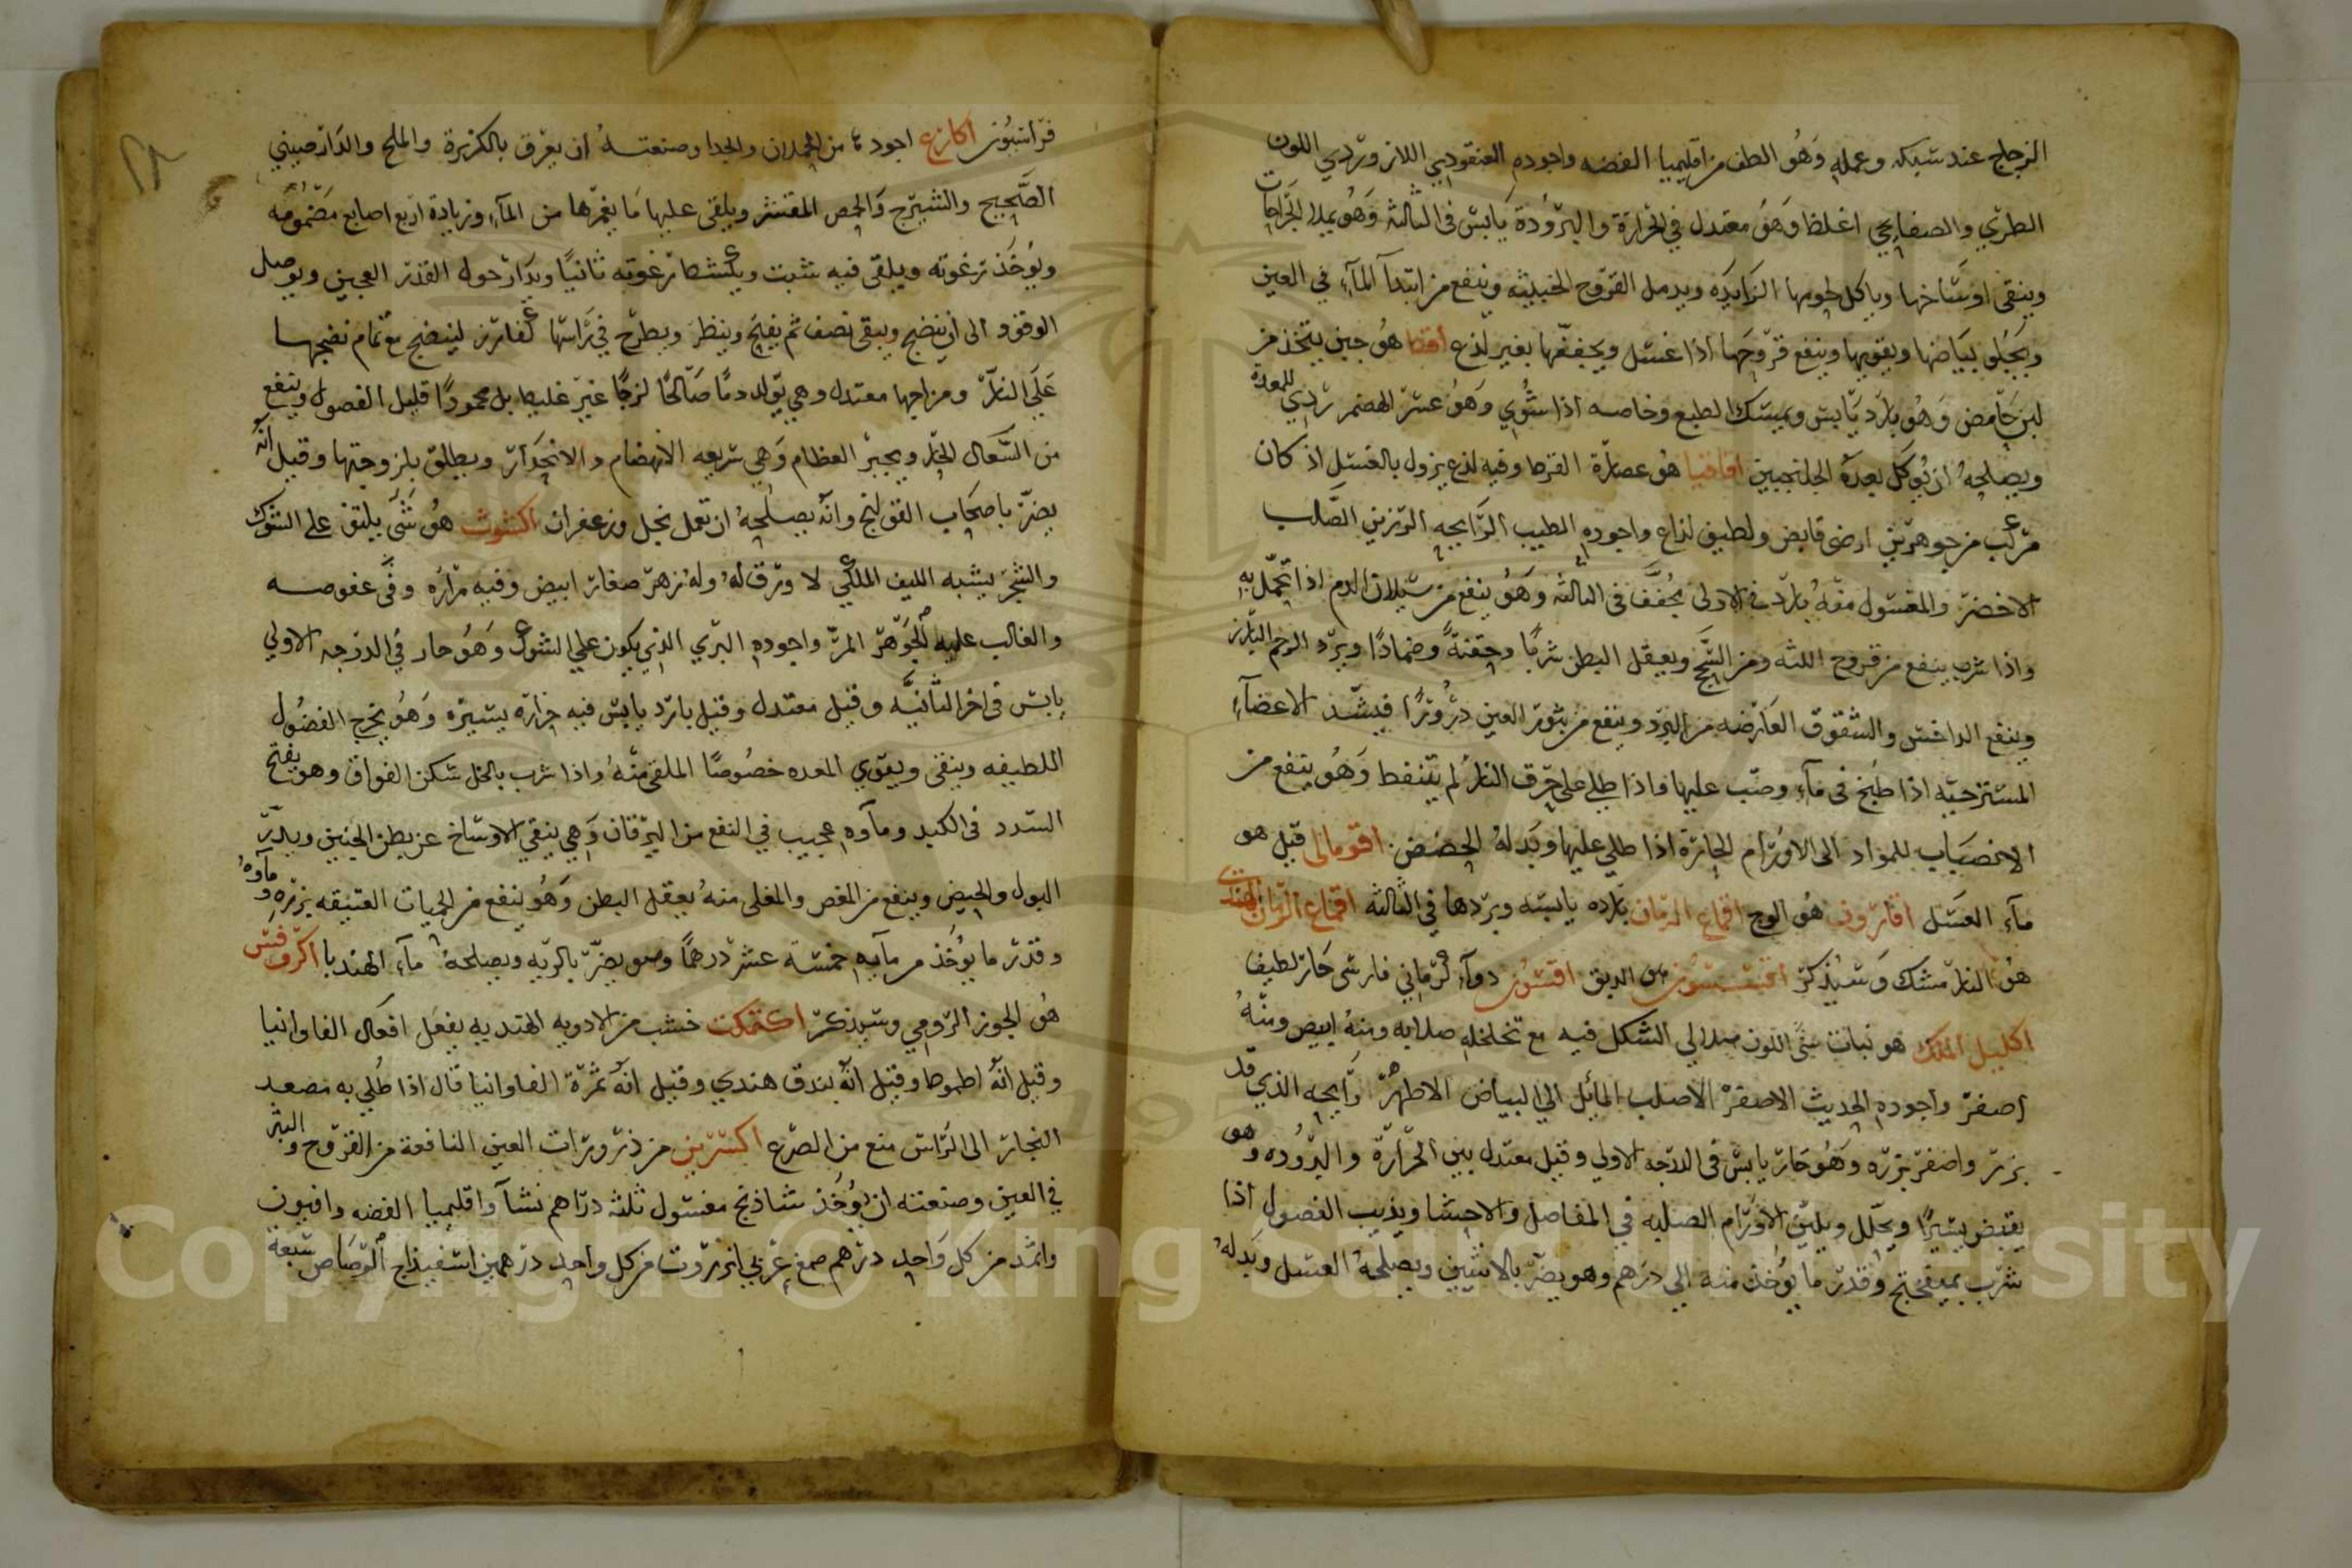 الزجاج عند سبكه وعمله وَهُو الطف من اقليميا الفضه واجوده العنقوديي اللازوردي اللون
الطري والصفايحي اغلظ وَهوَ معتدل في الحرارة والبرودة يابس فى الثالثه وَهُو يملا الجراحات
وينقى اوساخها وياكل لحومها الزايده ويدمل القروح الخبيثه وينفع من ابتدآ المآء في العين
ويجلو بياضها ويقويها وينفع قروحها اذا غسل ويجففها بغير لذع اقط هُو جبن يتخذ من
لبن حامض وَهُو بارد يابس ويمسك الطبع وخاصه اذا شُوي وَهوُ عسر الهضم ردي للمعدة
ويصلحهُ ان يُوكل بعدهُ الجلنجبين اقاقيا هُو عصارة القرط وفيه لذع يزول بالغسل اذ كان
مركب من جوهرين ارضى قابض ولطيف لذاع واجوده الطيب الرايحه الرزين الصلب
الاخضر والمغسول منهُ بارد في الاولى مجفف فى الثالثه وَهوُ ينفع من سيلان الدم اذا تحمل به
واذا شرب ينفع من قروح اللثه ومن السحج ويعقل البطن شربًا وحقنةً وضمادًا ويرد الرحم البارز
وينفع الداخس والشقوق العارضه من البرد وينفع من بثور العين ذرُورًا فيشد الاعضآء
المسترخيه اذا طُبخ فى مآء وصب عليها واذا طلي على حرق النار لم يتنفط وَهُو ينفع من
الانصباب للمواد الى الاورام الحارة اذا طلي عليها وبَدلهُ الحضض اقومالى قيل هو
مآء العسَل اقارون هُو الوج اقماع الرمان بارده يابسه وبردها في الثالثه اقماع الرمان الهندى
هُو النار مشك وَسَيذكر هُو الدبق اقسون دوآء كرماني فارسى حَار لطيف
اكليل الملك هو نبات تبنى اللون هلالي الشكل فيه مع تخلخله صلابه ومنهُ ابيض ومنهُ
اصفر واجوده الحديث الاصفر الاصلب المائل الي البياض الاطهر رايحه الذي قد
بزر واصفر بزره وَهُو حَار يابس فى الدرجه الاولي وقيل معتدل بين الحرارة والبرُوده وهو
يقبض يسيرًا ويحلل ويلين الاورام الصلبه في المفاصل والاحشا ويذيب الفضول اذا
شرب بميفختج وقدر ما يؤخذ منه الي درهم وهو يضر بالانثيين ويصلحهُ العسل وبَدلهُ
قراسيُون اكارع اجودها من الحملان والجدا وصنعتهُ ان يعرق بالكزبرة والملح والدارصيني
الصَحيح والشيرج وَالحمص المقشر ويلقى عليها مَا يغمرها من المآء وزيادة اربع اصابع مضمومه
ويُوخذ رغوته ويلقى فيه شبت ويكشط رغوته ثانيًا ويدار حول القدر العجين ويوصل
الوقود الى ان ينضج ويبقى نصف ثم يفتح وينظر ويطرح في راسها كفارز لينضج مع تمام نضجها
عَلَى النار ومزاجها معتدل وهي تولد دمًا صَالحًا لزجًا غير غليظ بل محمودًا قليل الفصول وينفع
من السعال الحار ويجبر العظام وَهي سريعه الانهضام والانحدار ويطلق بلزوجتها وقيل انهُ
يضر باصحَاب القولنج وانهُ يصلحهُ ان تعمل بخل وزعفران اكشوث هُو شَىَ يلتف على الشوك
والشجر يشبه الليف المكي لا ورق لهُ ولهُ زهر صغار ابيض وفيه مرارَه وفى عفوصه
والغالب عليه الجوهر المر واجوده البري الذي يكون علي الشوك وَهُو حار في الدرجه الاولي
يابس فى اخر الثانيه وقيل معتدل وقيل بارد يابس فيه حراره يسيره وَهُو يخرج الفضُول
اللطيفه وينقى ويقوي المعده خصُوصًا الملقى منهُ واذا شرب بالخل سكن الفواق وهو يفتح
السدد فى الكبد ومآوه عجيب في النفع من اليرقان وَهي ينقي الاوساخ عن بطن الجنين ويدر
البول والحيض وينفع من المغص والمغلى منهُ يعقل البطن وَهُو ينفع من الحميات العتيقه بزره ومآوهُ
وقدر ما يُوخذ من مآيه خمسة عشر درهمًا وهو يضر بالريه ويصلحهُ مآء الهندبا اكرفس
هُو الجوز الرومي وسيذكر اكتمكت خشب من الادويه الهنديه يفعل افعَال الفاوانيا
وقيل انهُ اطموط وقيل انهُ بندق هندي وقيل انهُ ثمرة الفاوانيا قال اذا طُلي به مصعد
البخار الى الراس منع من الصرع اكسرين من ذرورات العين النافعة من القروح والبثر
في العين وصنعته ان يُوخذ شاذنج مغسول ثلثه دراهم نشآ واقليميا الفضه وافيون
واثمد من كل وَاحد درهم صمغ عربي انزروت من كل واحد درهمين اسفيذاج الرصَاص سبعة